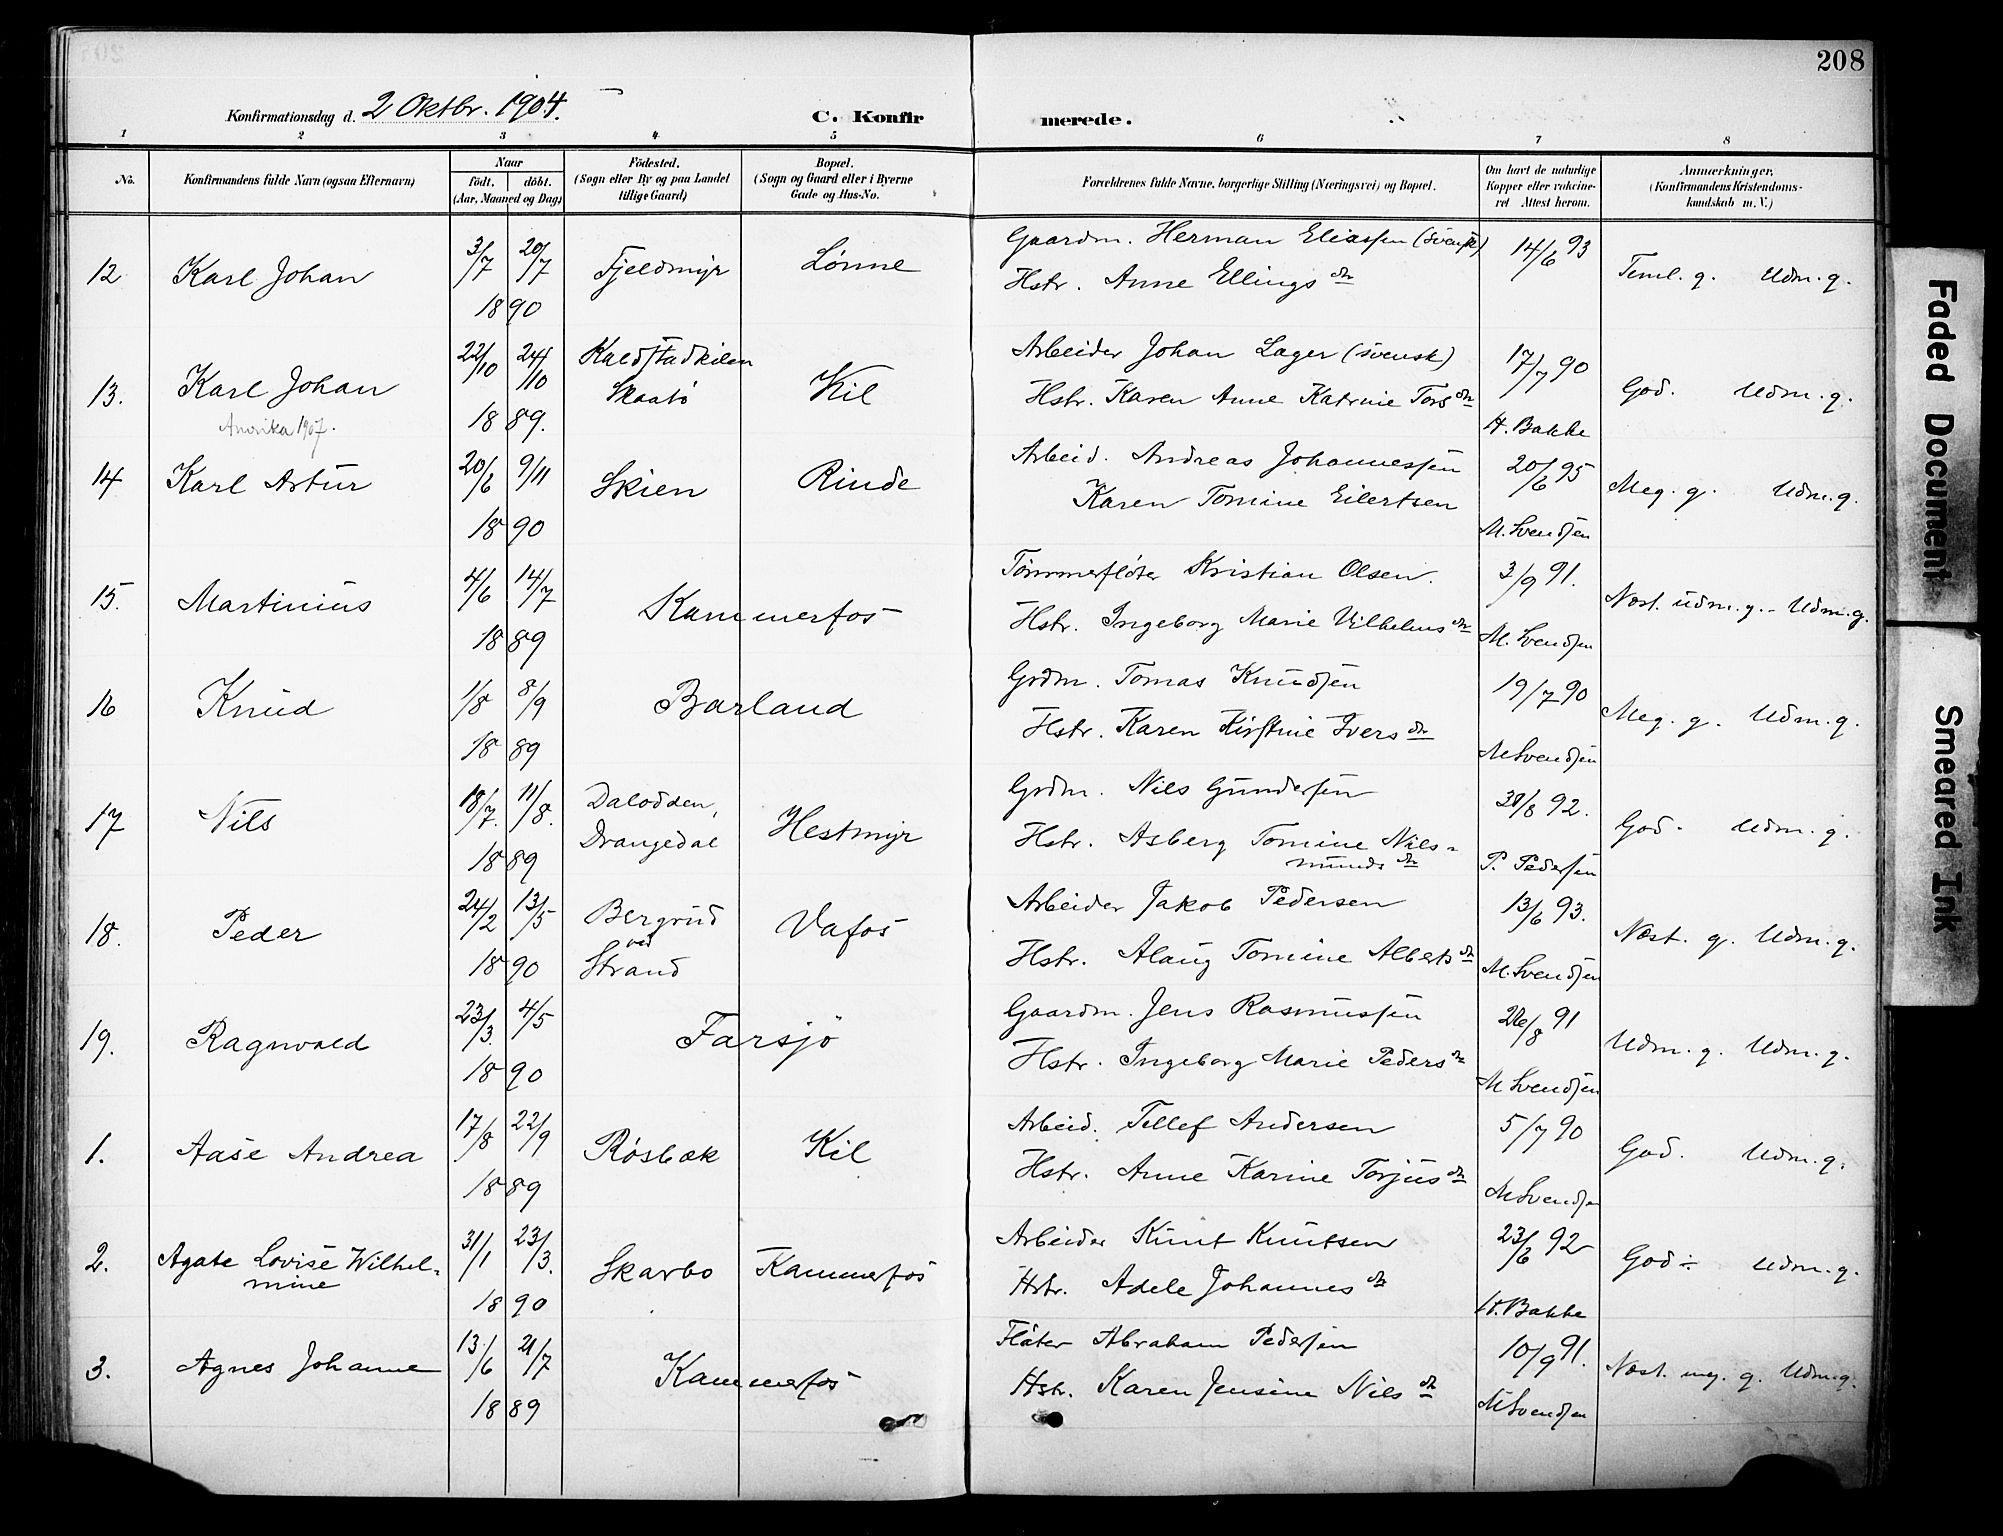 208
Konfirmationsdag d. 2 Oktbr. 1904.
C. Konfirmerede.
1 2 3 4 5 6 7 8
No.
Konfirmandens fulde Navn (ogsaa Efternavn)
Naar
født, døbt.
(Aar, Maaned og Dag)
Fødested.
(Sogn eller By og paa Landet
tillige Gaard)
Bopæl.
(Sogn og Gaard eller i Byerne
Gade og Hus-No.
Forældrenes fulde Navne, borgerlige Stilling (Næringsvei) og Bopæl.
Om havt de naturlige
Kopper eller vakcine-
ret Attest herom.
Anmærkninger,
(Konfirmandens Kristendoms-
kundskab m. V.)
12 Karl Johan 3/7 20/7 1890 Fjeldmyr Lønne
Gaardm. Herman Eliassen (svensk)
Hstr. Anne Ellingsdr
14/6 93
Teml. g. Udm. g.
13. Karl Johan 22/10 24/10 1889.
Amerika 1907.
Kaldstadkilen
Skaatø
Kil
Arbeider Johan Lager (svensk)
Hstr. Karen Anne Katrine Torsdr
17/7 90
H. Bakke
God. Udm. g.
14 Karl Artur 20/6 9/11 1890 Skien Rinde
Arbeid. Andreas Johannessen
Karen Tomine Eilertsen
20/6 95
M. Svendsen
Meg. g. Udm. g.
15. Martinius 4/6 14/7 1889 Kammerfos
Tømmerfløter Kristian Olsen.
Hstr. Ingeborg Marie Vilhelmsdr
3/9 91.
M. Svendsen
Næst. udm. g. - Udm. g.
16 Knud 1/8 8/9 1889 Barland
Grdm. Tomas Knudsen
Hstr. Karen Kirstine Iversdr
19/7 90
M Svendsen
Meg. g. Udm. g.
17 Nils 18/7. 11/8. 1889
Dalodden,
Drangedal
Hestmyr
Grdm. Nils Gundersen
Hstr. Asberg Tomine Nils-
mundsdr
/8 92.
P. Pedersen
God. Udm. g.
18. Peder 24/2 13/5 1890
Bergrud
ved
Strand
Vafos
Arbeider Jakob Pedersen
Hstr. Alaug Tomine Albertsdr
13/6 93.
M. Svendsen
Næst. g. Udm. g.
19. Ragnvald 23/3. 4/5 1890 Farsjø
Gaardm. Jens Rasmussen
Hstr. Ingeborg Marie Pedersdr
/8 91
M Svendsen
Udm. g. Udm. g.
1. Aase Andrea 17/8 22/9 1889 Røsbæk Kil
Arbeid. Tellef Andersen
Hstr. Anne Karine Torjusdr
5/7 90
M Svendsen
God. Udm. g.
2. Agate Lovise Wilhel-
mine
31/1 23/3. 1890 Skarbo Kammerfos
Arbeider Knut Knutsen
Hstr. Adele Johannesdr
23/6 92
H. Bakke
God ÷ Udm. g.
3. Agnes Johanne 13/6 21/7 1889 Kammerfos
Fløter Abraham Pedersen
Hstr. Karen Jensine Nilsdr
10/9 91.
M Svendsen
Næst. meg. g. Udm. g.
Faded Document
Smeared Ink